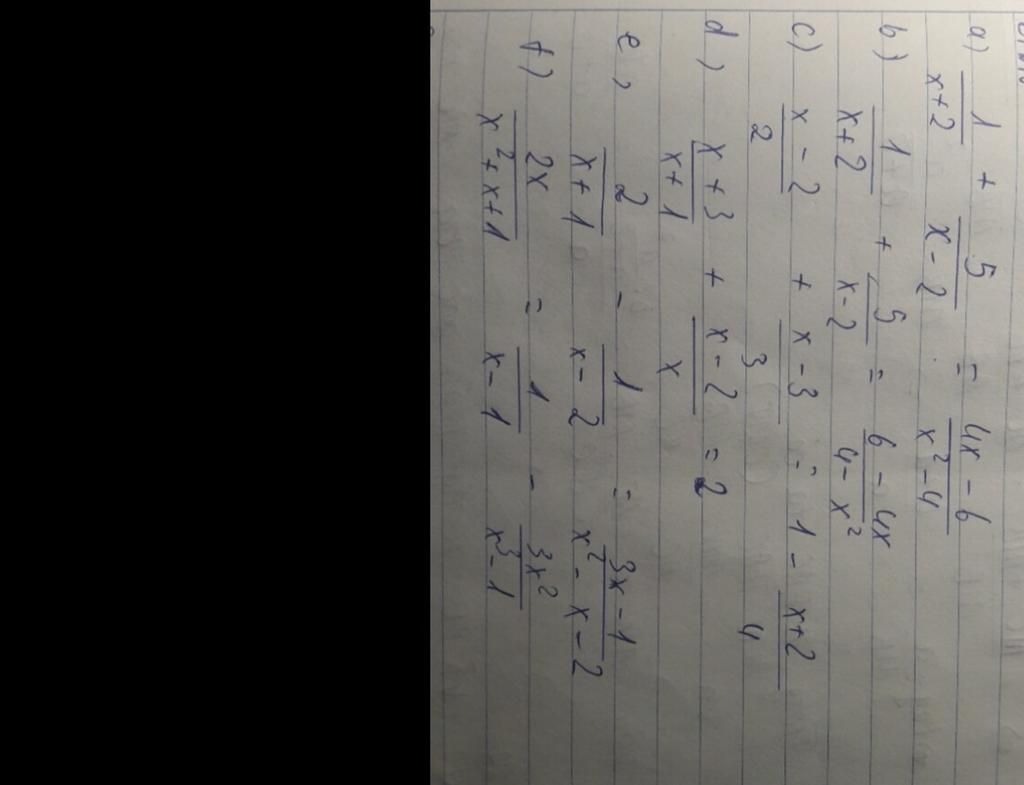 a) 1/(x+2) + 5/(x-2) = (4x-6)/(x²-4)
b) 1/(x+2) + 5/(x-2) = (6-4x)/(4-x²)
c) (x-2)/2 + (x-3)/3 = 1 - (x+2)/4
d) (x+3)/(x+1) + (x-2)/x = 2
e) 2/(x+1) - 1/(x-2) = (3x-1)/(x²-x-2)
f) 2x/(x²+x+1) = 1/(x-1) - 3x²/(x³-1)